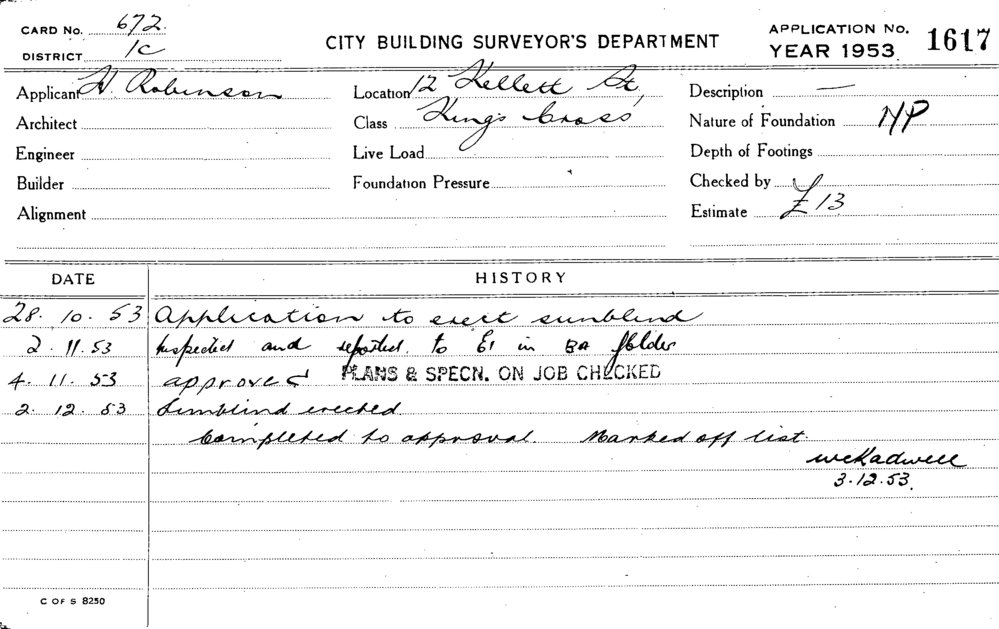 CARD No. 672.
DISTRICT 1c
CITY BUILDING SURVEYOR'S DEPARTMENT
APPLICATION No. 1617
YEAR 1953
Applicant H. Robinson
Architect
Engineer
Builder
Alignment
Location 12 Kellett St,
Class Kings Cross
Live Load
Foundation Pressure
Description —
Nature of Foundation NP
Depth of Footings
Checked by
Estimate £13
DATE HISTORY
28. 10. 53 Application to erect sunblind
2. 11. 53 Inspected and reported to E1 in BA folder
4. 11. 53 approved PLANS & SPECN. ON JOB CHECKED
2. 12. 53 Sunblind erected
Completed to approval. Marked off list.
WcKadwell
3.12.53.
C OF S 8250